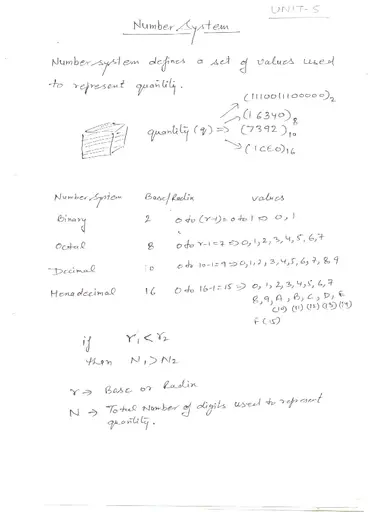 UNIT-5
Number System
Number system defines a set of values used
to represent quantity.
(1110011100000)2
(16340)8
quantity (q) => (7392)10
(1CE0)16
Number System Base/Radix values
Binary 2 0 to (r-1)=0 to 1 => 0, 1
Octal 8 0 to r-1=7 => 0,1,2,3,4,5,6,7
Decimal 10 0 to 10-1=9 => 0,1,2,3,4,5,6,7,8,9
Hexadecimal 16 0 to 16-1=15 => 0,1,2,3,4,5,6,7
8,9,A,B,C,D,E
(10) (11) (12) (13) (14)
F(15)
if r1 < r2
then N1 > N2
r → Base or Radix
N → Total Number of digits used to represent
quantity.